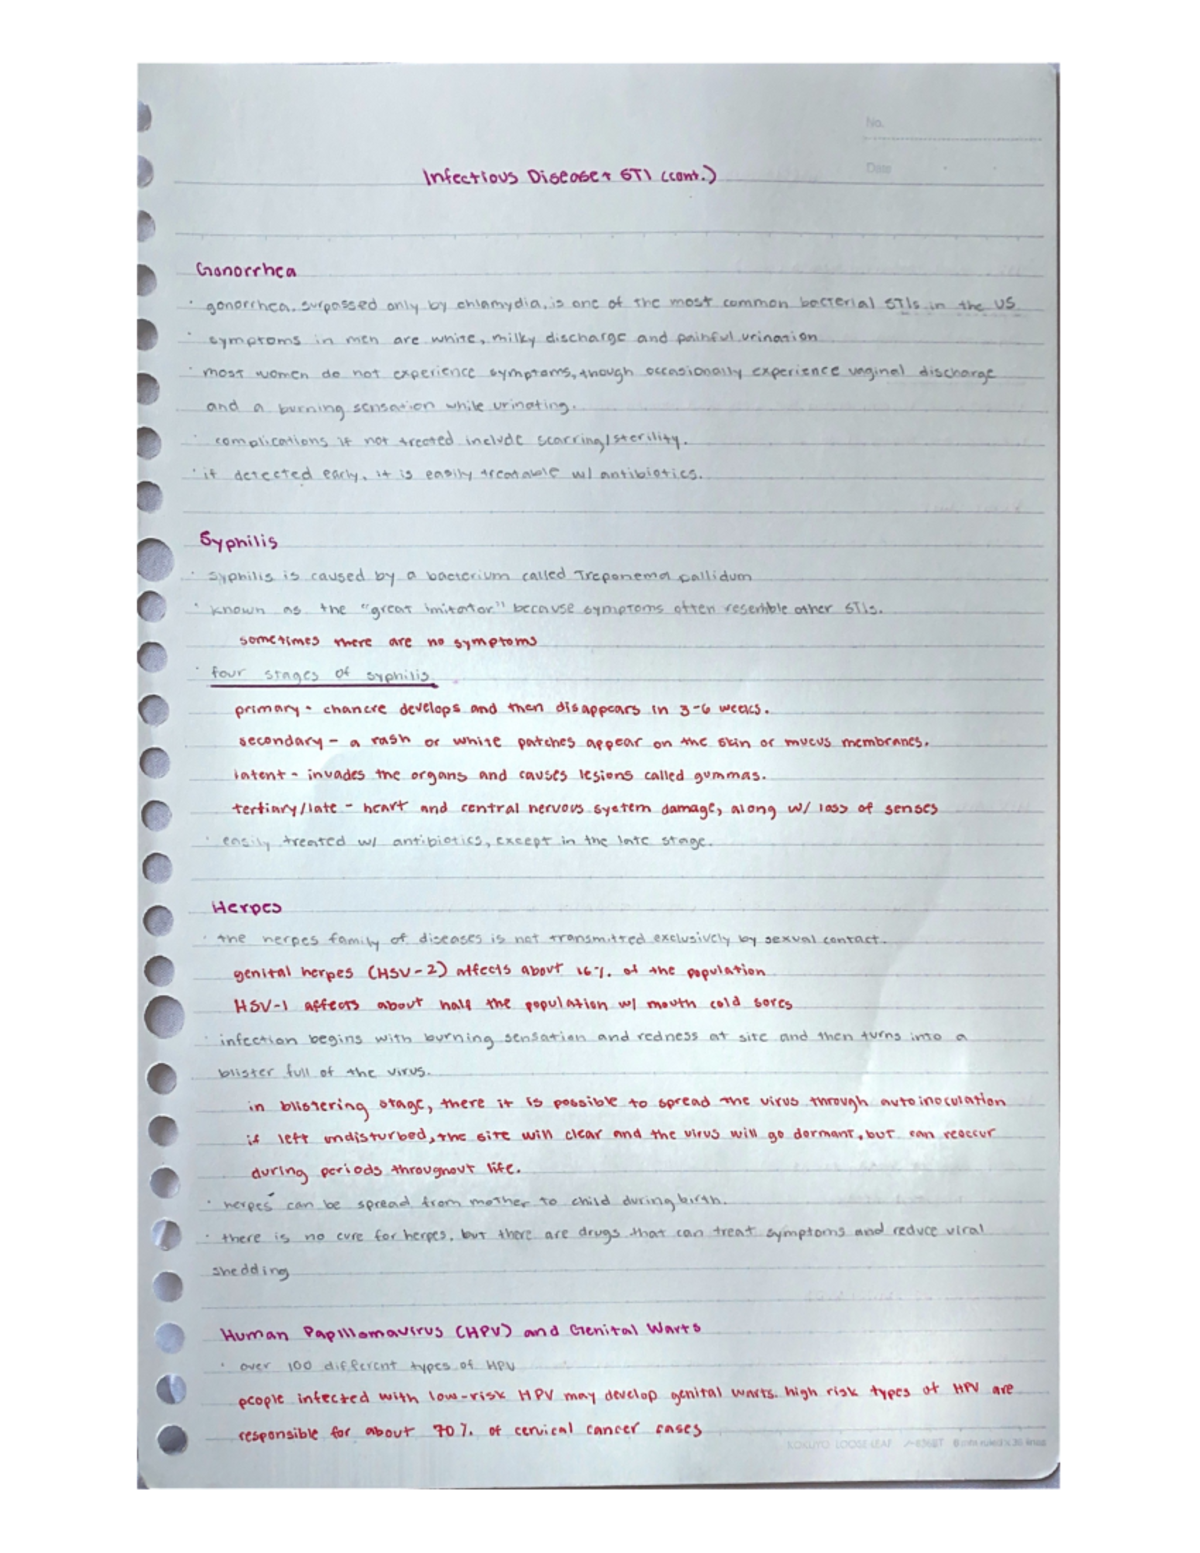 No.
Date
Infectious Disease + STI (cont.)
Gonorrhea
· gonorrhea, surpassed only by chlamydia, is one of the most common bacterial STIs in the US
· symptoms in men are white, milky discharge and painful urination
· most women do not experience symptoms, though occasionally experience vaginal discharge
and a burning sensation while urinating.
· complications if not treated include scarring/sterility.
· if detected early, it is easily treatable w/ antibiotics.
Syphilis
· syphilis is caused by a bacterium called Treponema pallidum
· known as the "great imitator" because symptoms often resemble other STIs.
sometimes there are no symptoms
· four stages of syphilis
primary - chancre develops and then disappears in 3-6 weeks.
secondary - a rash or white patches appear on the skin or mucus membranes.
latent - invades the organs and causes lesions called gummas.
tertiary/late - heart and central nervous system damage, along w/ loss of senses
· easily treated w/ antibiotics, except in the late stage.
Herpes
· the herpes family of diseases is not transmitted exclusively by sexual contact.
genital herpes (HSV-2) affects about 16% of the population
HSV-1 affects about half the population w/ mouth cold sores
· infection begins with burning sensation and redness at site and then turns into a
blister full of the virus.
in blistering stage, there it is possible to spread the virus through autoinoculation
if left undisturbed, the site will clear and the virus will go dormant, but can reoccur
during periods throughout life.
· herpes can be spread from mother to child during birth.
· there is no cure for herpes, but there are drugs that can treat symptoms and reduce viral
shedding
Human Papillomavirus (HPV) and Genital Warts
· over 100 different types of HPV
people infected with low-risk HPV may develop genital warts. high risk types of HPV are
responsible for about 70% of cervical cancer cases
KOKUYO LOOSE-LEAF